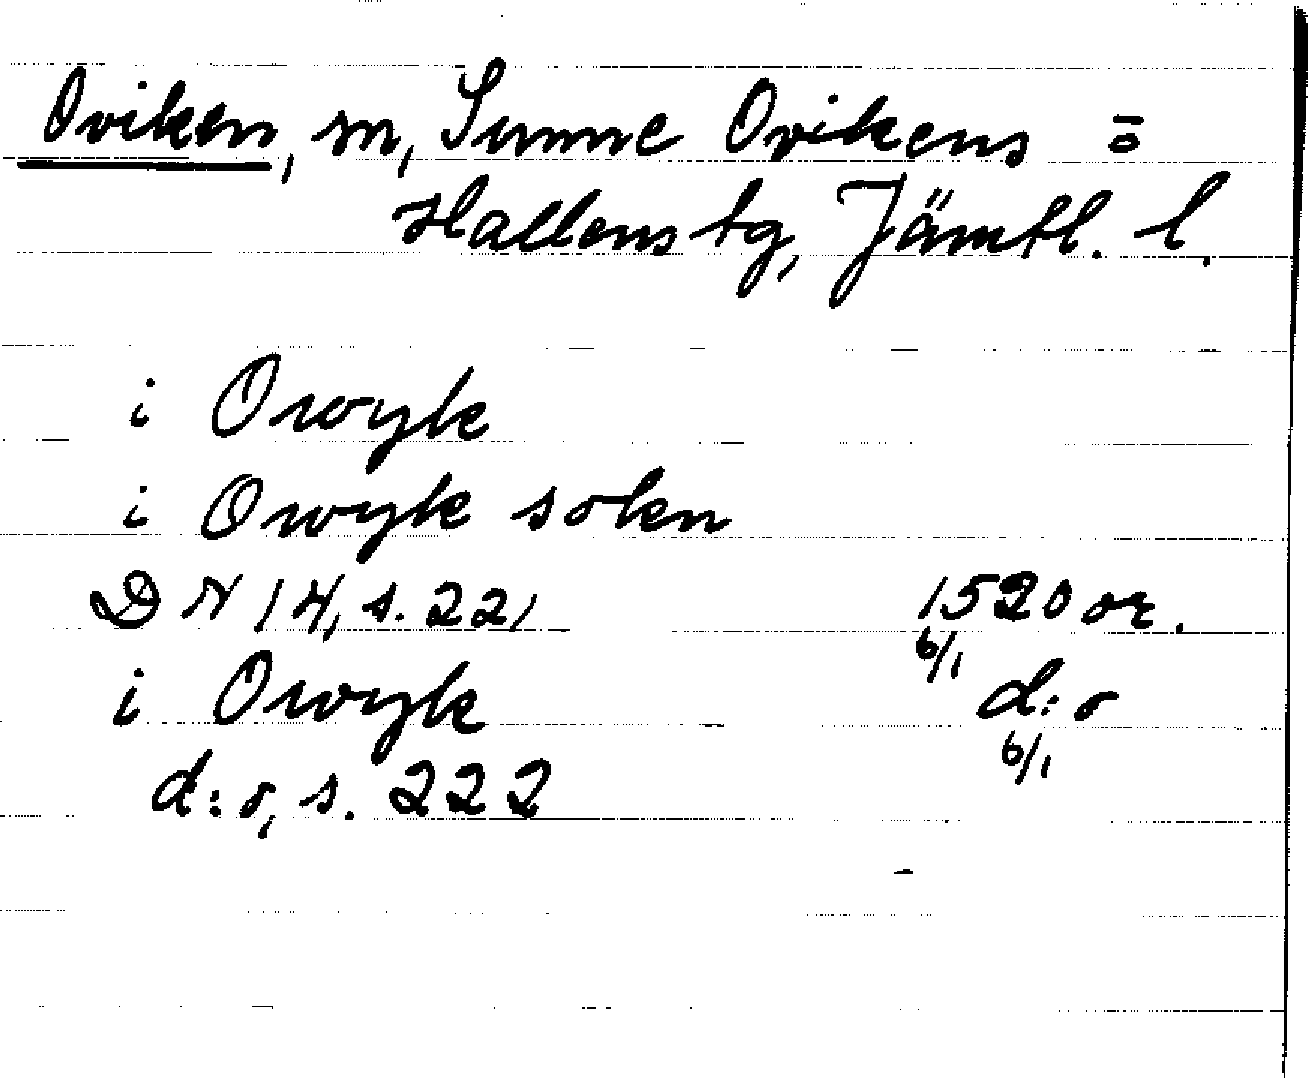 Oviken, sn, Sunne Ovikens o
Hallens tg, Jämtl. l.
i Owyk
i Owyk sokn
DN 14, s. 221 1520 or.
6/1
i Owyk d:o
6/1
d:o, s. 222